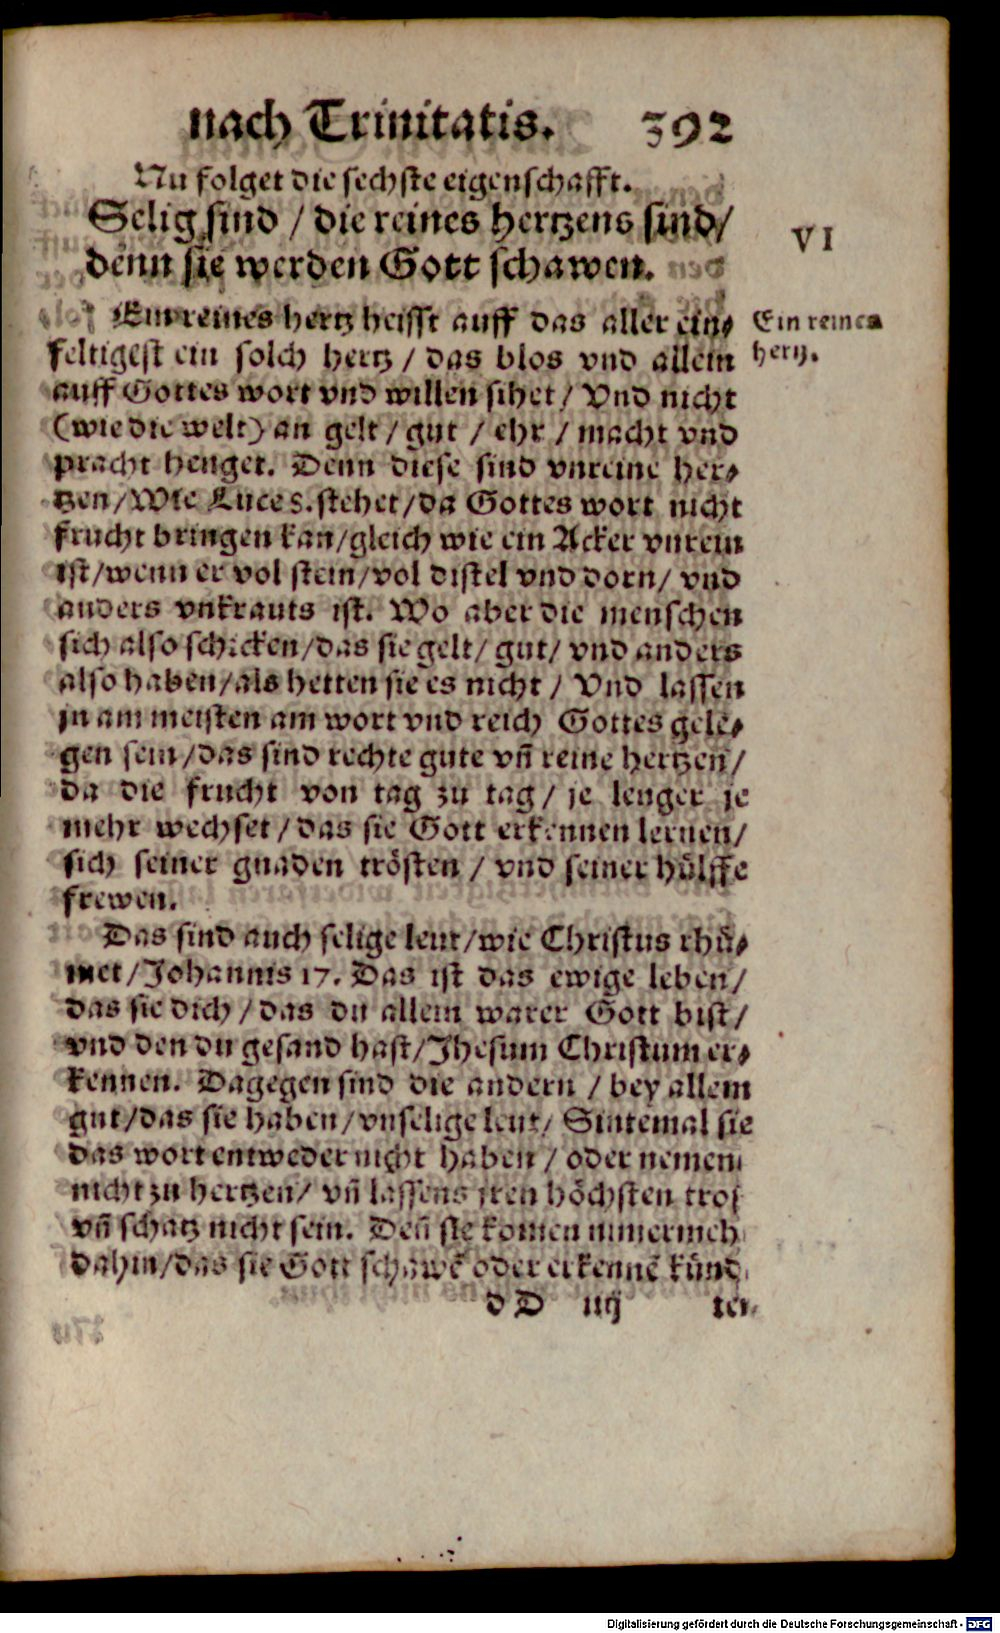 nach Trinitatis. 392
Nu folget die sechste eigenschafft.
Selig sind / die reines hertzens sind /
denn sie werden Gott schawen.
VI
Ein reines hertz heisst auff das aller ein⸗
feltigest ein solch hertz / das blos vnd allein
auff Gottes wort vnd willen sihet / Vnd nicht
(wie die welt) an gelt / gut / ehr / macht vnd
pracht henget. Denn diese sind vnreine her⸗
tzen / Wie Luce 8. stehet / da Gottes wort nicht
frucht bringen kan / gleich wie ein Acker vnrein
ist / wenn er vol stein / vol distel vnd dorn / vnd
anders vnkrauts ist. Wo aber die menschen
sich also schicken / das sie gelt / gut / vnd anders
also haben / als hetten sie es nicht / Vnd lassen
jn am meisten am wort vnd reich Gottes gele⸗
gen sein / das sind rechte gute vñ reine hertzen /
da die frucht von tag zu tag / je lenger je
mehr wechset / das sie Gott erkennen lernen /
sich seiner gnaden trösten / vnd seiner hülffe
frewen.
Ein reines
hertz.
Das sind auch selige leut / wie Christus rhü⸗
met / Johannis 17. Das ist das ewige leben /
das sie dich / das du allein warer Gott bist /
vnd den du gesand hast / Jhesum Christum er⸗
kennen. Dagegen sind die andern / bey allem
gut / das sie haben / vnselige leut / Sintemal sie
das wort entweder nicht haben / oder nemen
nicht zu hertzen / vñ lassens jren höchsten tros
vñ schatz nicht sein. Deñ sie komen nimermeh
dahin / das sie Gott schawẽ oder erkennẽ künd
dD iiij ten
Digitalisierung gefördert durch die Deutsche Forschungsgemeinschaft - DFG